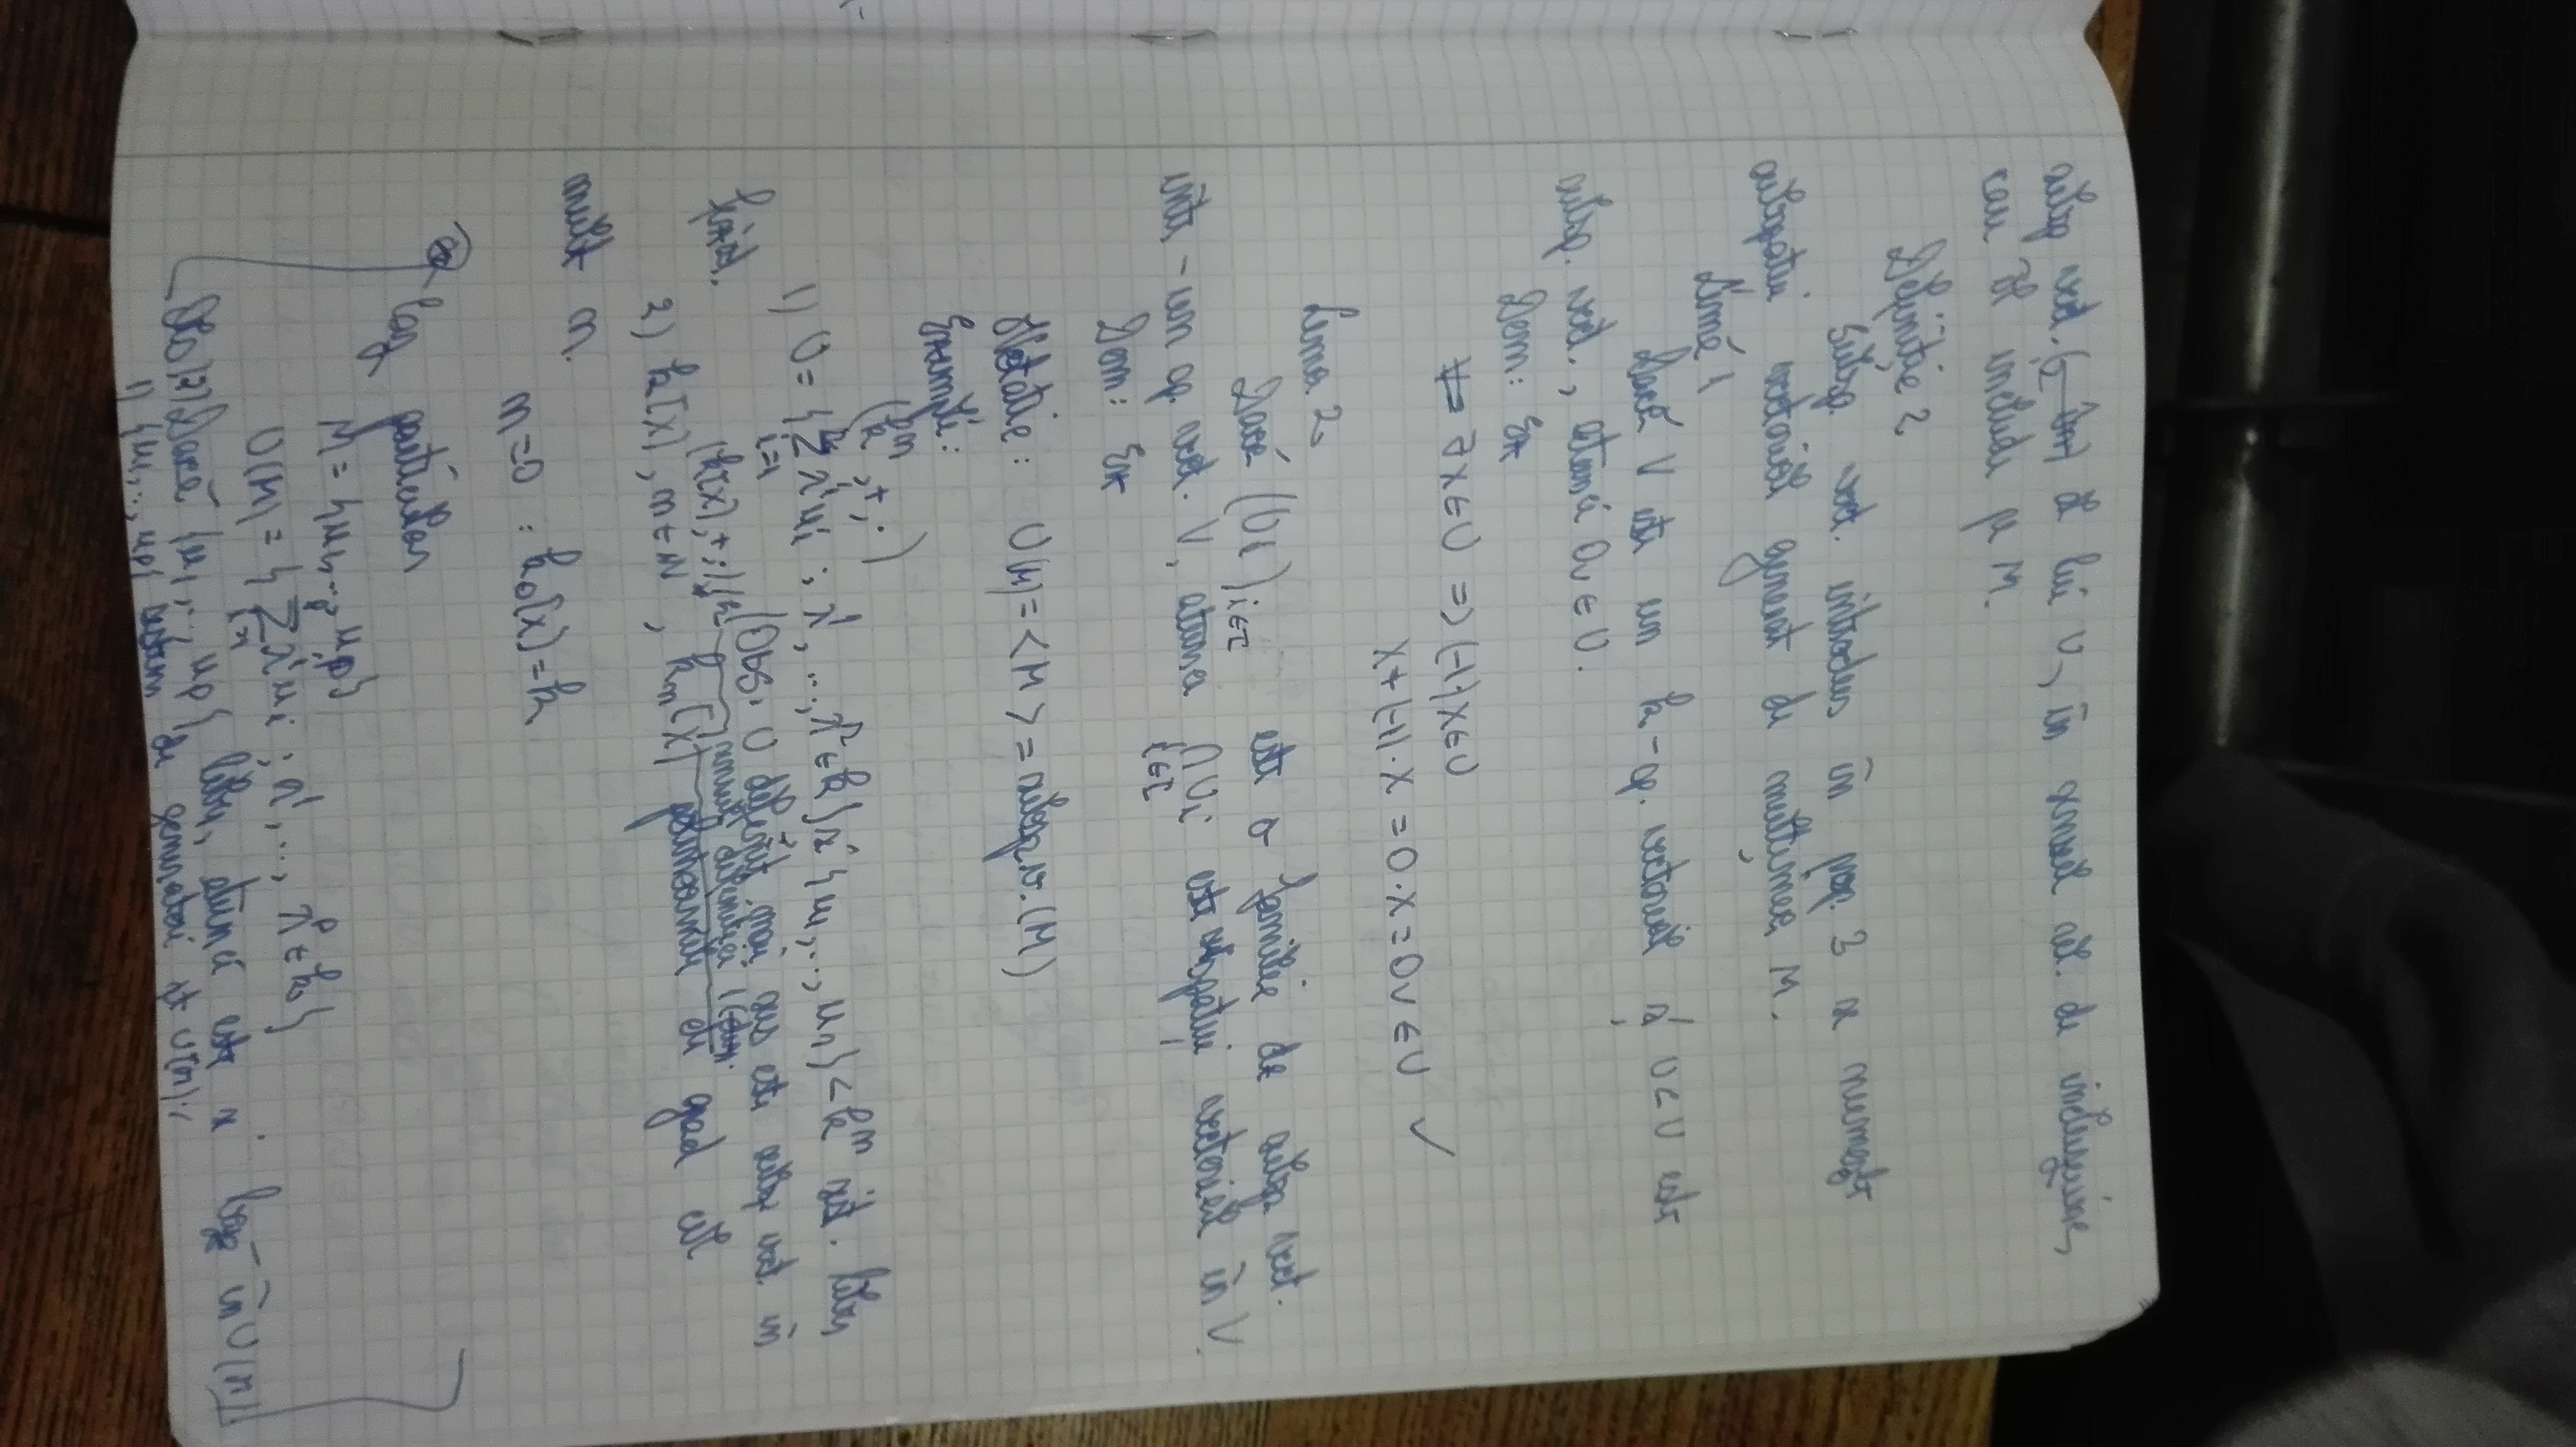 subsp vect. al lui V, în sensul rel. de incluziune,
care îl include pe M.
Definiție 2
Subsp. vect. introdus în prop. 3 se numește
subspațiu vectorial generat de mulțimea M.
Lemă 1
Dacă V este un k-sp. vectorial și U<V este
subsp. vect., atunci 0v ∈ U.
Dem: Ex
∃x∈U => (-1)x∈U
x+(-1)·x = 0·x = 0v ∈ U ✓
Lema 2
Dacă (Ui)i∈I este o familie de subsp vect.
într-un sp. vect. V, atunci ∩Ui i∈I este subspațiu vectorial în V.
Dem: Ex
Notație: U(M) = <M> = subsp.v.(M)
Exemple:
(k^m, +, ·)
1) U = {Σ λ^i ui ; λ^1, ..., λ^n ∈ k} și {u1, ..., un} < k^m sist. liber
fixat.
(Obs: U definit mai sus este subsp vect. în
(k[x], +, ·)/k
2) k[x], m∈N, km[x] polinoamele de grad cel
mult m.
m=0 : k0[x] = k
Caz particular
M = {u1, ..., up}
U(M) = {Σ λ^i ui ; λ^1, ..., λ^p ∈ k}
Obs) 2) Dacă {u1, ..., up} liber, atunci este și bază în U(M)
1) {u1, ..., up} sistem de generatori pt U(M)